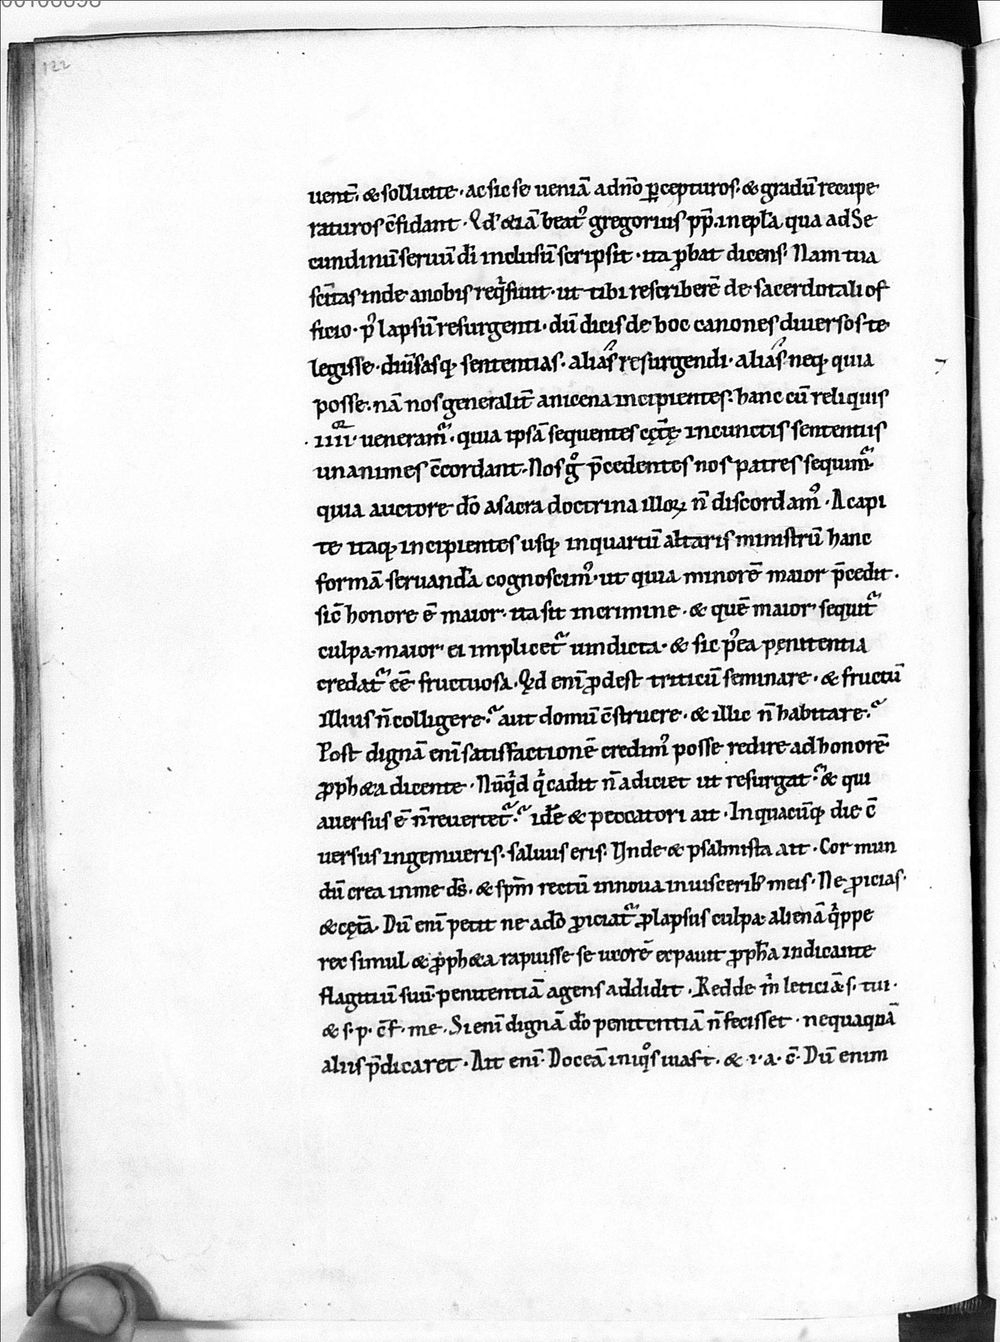 00108898
122
uent̄. & sollicite · ac sic se ueniā a dn̄o p̱cepturos · & gradū recupe
raturos c̄fidant · Qd' &iā beat᷒ gregorius pp̄. in epl̄a qua ad Se
cundinū seruū dī inclusū scripsit · ita p̱bat dicens. Nam tua
sc̄itas inde a nobis reqͥsiuit · ut tibi rescriberē de sacerdotali of
ficio · p᷒ lapsū resurgenti · dū dicis de hoc canones diuersos te
legisse · diūsasq; sententias · alias resurgendi · alias neq; quia
posse. nā nos generalit̄ a nicena incipientes. hanc cū reliquis
· iiiior · ueneram᷒ · quia ipsā sequentes cęt̄ę in cunctis sententiis
unanimes c̄cordant. Nos gͦ p̄cedentes nos patres sequim᷒
quia auctore dō a sacra doctrina illoꝝ n̄ discordam᷒ · A capi
te itaq; incipientes usq; in quartū altaris ministrū hanc
formā seruandā cognoscim᷒ · ut quia minorē maior p̄cedit ·
sic̄ honore ē maior · ita sit in crimine · & quē maior sequit᷑
culpa · maior ei implicet᷑ uindicta · & sic p᷒ea pęnitentia
credat᷑ eē fructuosa. Qd enī ꝓdest triticū seminare · & fructū
illius n̄ colligere? aut domū c̄struere · & illic n̄ habitare?
Post dignā enī satisfactionē credim᷒ posse redire ad honorē
ꝓph&a dicente · Nūqͥd qͥ cadit n̄ adiciet ut resurgat? & qui
auersus ē n̄ reuertet᷑? idē & peccatori ait · In quacūq; die c̄
uersus ingemueris · saluus eris. Unde & psalmista ait · Cor mun
dū crea in me ds̄. & sp̄m rectū innoua in uisceribꝰ meis. Ne ꝓicias ·
& cęt̄a. Dū enī petit ne a dō ꝓiciat᷑ ꝓlapsus culpa: alienā qͥppe
rex simul & ꝓph&a rapuisse se uxorē expauit ꝓph̄a indicante
flagitiū suū · penitentiā agens addidit · Redde m̄ leticiā s. tui ·
& s · p · c̄f · me · Si enī dignā dō penitentiā n̄ fecisset · nequaquā
aliis p̄dicaret · Ait enī · Doceā iniqͦs uias t · & i · a · c̄ · Dū enim